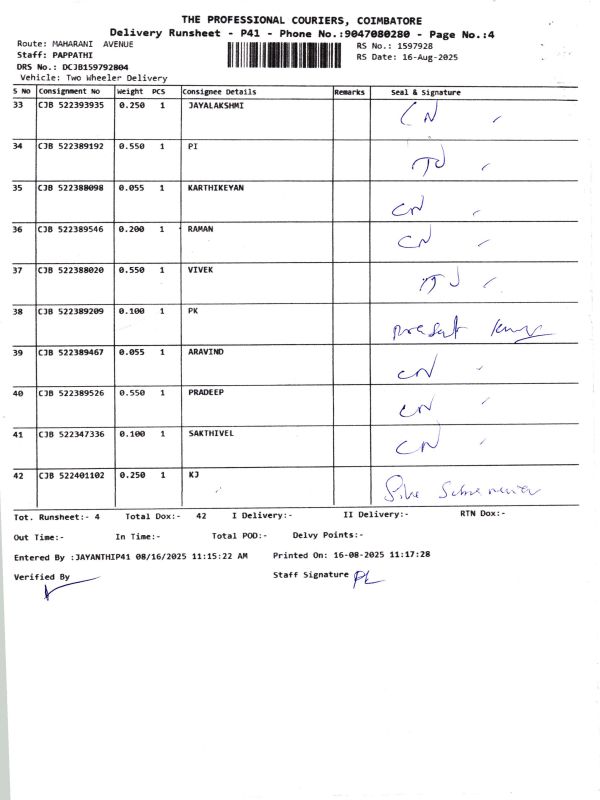 THE PROFESSIONAL COURIERS, COIMBATORE
Delivery Runsheet - P41 - Phone No.:9047080280 - Page No.:4
Route: MAHARANI AVENUE RS No.: 1597928
Staff: PAPPATHI RS Date: 16-Aug-2025
DRS No.: DCJB159792804
Vehicle: Two Wheeler Delivery
S No Consignment No Weight PCS Consignee Details Remarks Seal & Signature
33 CJB 522393935 0.250 1 JAYALAKSHMI CN
34 CJB 522389192 0.550 1 PI
35 CJB 522388098 0.055 1 KARTHIKEYAN CN
36 CJB 522389546 0.200 1 RAMAN CN
37 CJB 522388020 0.550 1 VIVEK
38 CJB 522389209 0.100 1 PK
39 CJB 522389467 0.055 1 ARAVIND CN
40 CJB 522389526 0.550 1 PRADEEP CN
41 CJB 522347336 0.100 1 SAKTHIVEL CN
42 CJB 522401102 0.250 1 KJ
Tot. Runsheet:- 4 Total Dox:- 42 I Delivery:- II Delivery:- RTN Dox:-
Out Time:- In Time:- Total POD:- Delvy Points:-
Entered By :JAYANTHIP41 08/16/2025 11:15:22 AM Printed On: 16-08-2025 11:17:28
Verified By Staff Signature